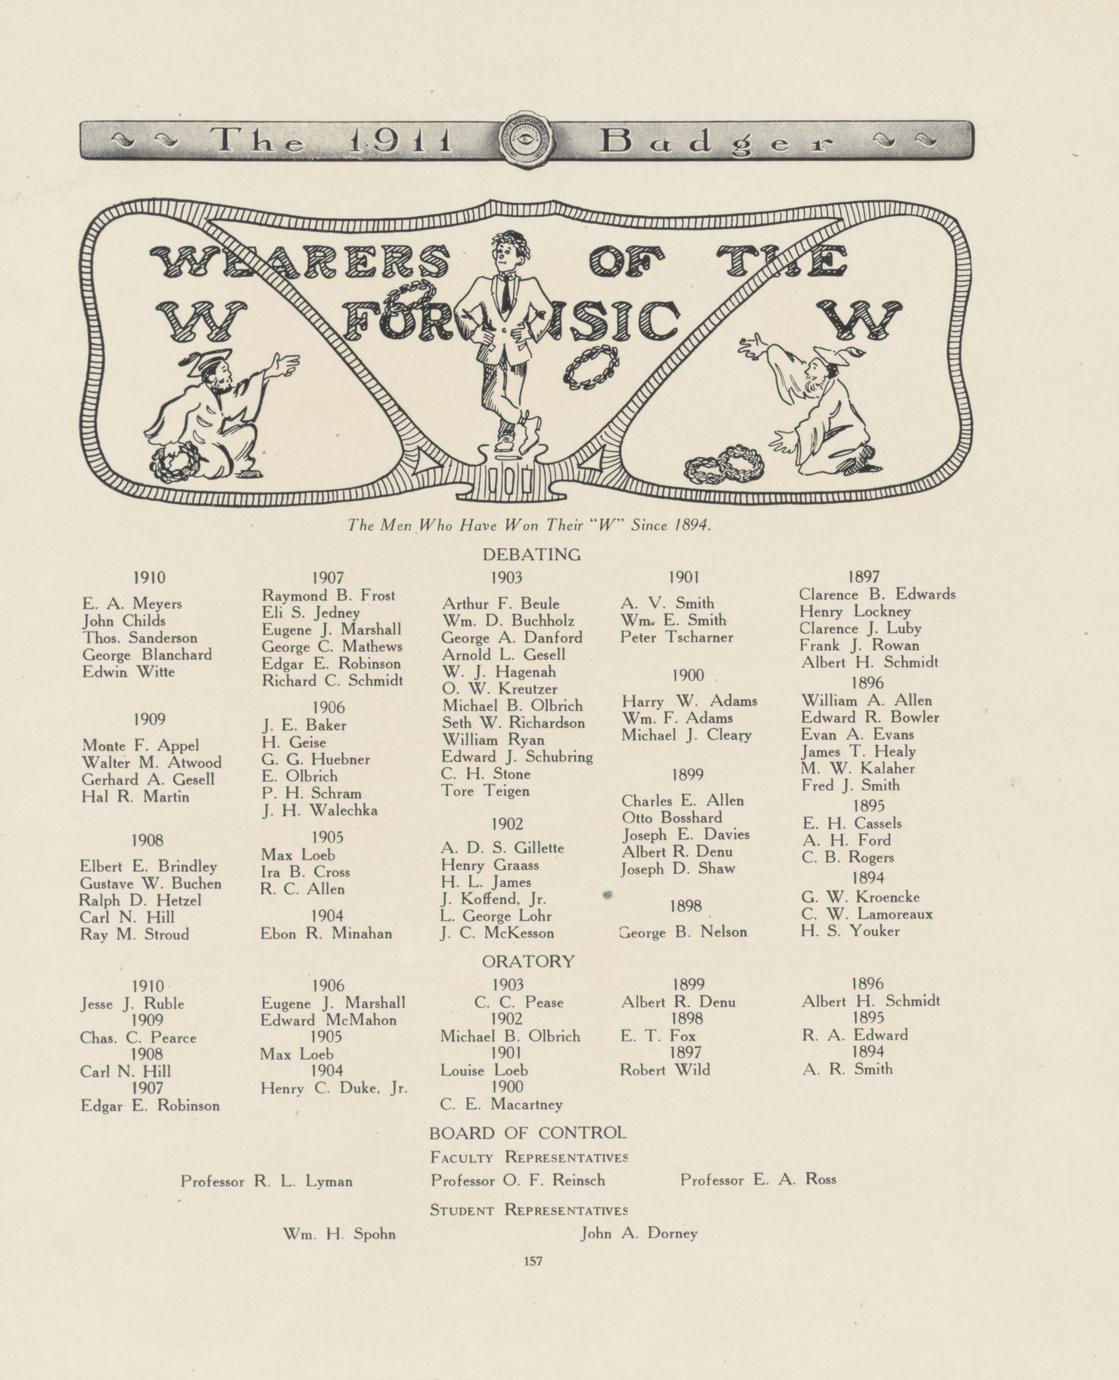 The 1911 Badger
WEARERS OF THE
W FORENSIC W
The Men Who Have Won Their "W" Since 1894.
DEBATING
1910
E. A. Meyers
John Childs
Thos. Sanderson
George Blanchard
Edwin Witte
1909
Monte F. Appel
Walter M. Atwood
Gerhard A. Gesell
Hal R. Martin
1908
Elbert E. Brindley
Gustave W. Buchen
Ralph D. Hetzel
Carl N. Hill
Ray M. Stroud
1907
Raymond B. Frost
Eli S. Jedney
Eugene J. Marshall
George C. Mathews
Edgar E. Robinson
Richard C. Schmidt
1906
J. E. Baker
H. Geise
G. G. Huebner
E. Olbrich
P. H. Schram
J. H. Walechka
1905
Max Loeb
Ira B. Cross
R. C. Allen
1904
Ebon R. Minahan
1903
Arthur F. Beule
Wm. D. Buchholz
George A. Danford
Arnold L. Gesell
W. J. Hagenah
O. W. Kreutzer
Michael B. Olbrich
Seth W. Richardson
William Ryan
Edward J. Schubring
C. H. Stone
Tore Teigen
1902
A. D. S. Gillette
Henry Graass
H. L. James
J. Koffend, Jr.
L. George Lohr
J. C. McKesson
1901
A. V. Smith
Wm. E. Smith
Peter Tscharner
1900
Harry W. Adams
Wm. F. Adams
Michael J. Cleary
1899
Charles E. Allen
Otto Bosshard
Joseph E. Davies
Albert R. Denu
Joseph D. Shaw
1898
George B. Nelson
1897
Clarence B. Edwards
Henry Lockney
Clarence J. Luby
Frank J. Rowan
Albert H. Schmidt
1896
William A. Allen
Edward R. Bowler
Evan A. Evans
James T. Healy
M. W. Kalaher
Fred J. Smith
1895
E. H. Cassels
A. H. Ford
C. B. Rogers
1894
G. W. Kroencke
C. W. Lamoreaux
H. S. Youker
ORATORY
1910
Jesse J. Ruble
1909
Chas. C. Pearce
1908
Carl N. Hill
1907
Edgar E. Robinson
1906
Eugene J. Marshall
Edward McMahon
1905
Max Loeb
1904
Henry C. Duke, Jr.
1903
C. C. Pease
1902
Michael B. Olbrich
1901
Louise Loeb
1900
C. E. Macartney
1899
Albert R. Denu
1898
E. T. Fox
1897
Robert Wild
1896
Albert H. Schmidt
1895
R. A. Edward
1894
A. R. Smith
BOARD OF CONTROL
FACULTY REPRESENTATIVES
Professor R. L. Lyman Professor O. F. Reinsch Professor E. A. Ross
STUDENT REPRESENTATIVES
Wm. H. Spohn John A. Dorney
157